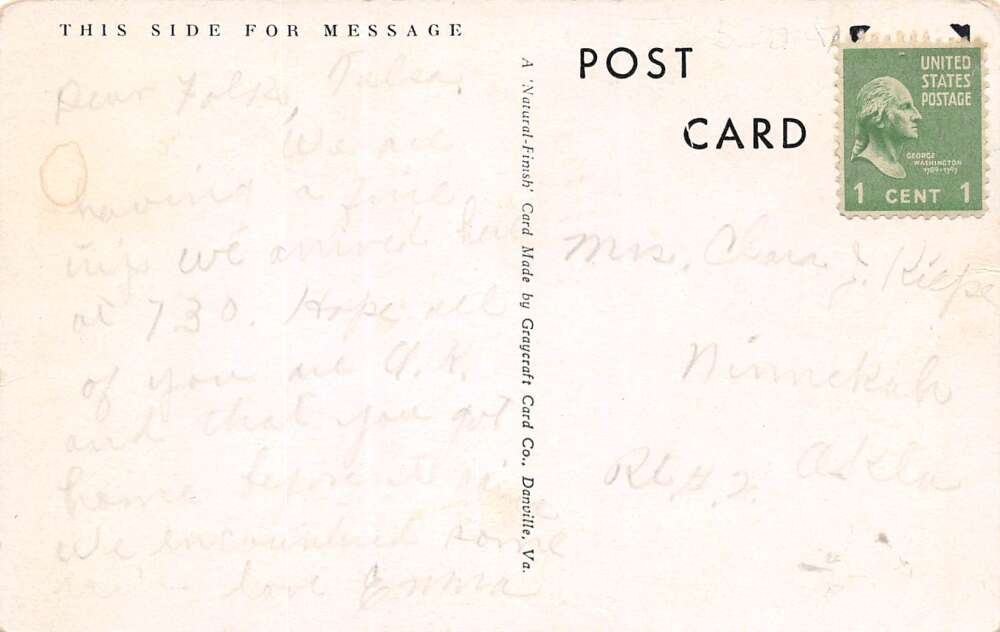 THIS SIDE FOR MESSAGE
Dear Folks, Tulsa,
We are
having a fine
trip we arrived here
at 730. Hope all
of you are O.K.
and that you got
home before the
We encountered some
love Emma
A 'Natural-Finish' Card Made by Graycraft Card Co., Danville, Va.
POST
CARD
UNITED
STATES
POSTAGE
GEORGE
WASHINGTON
1789-1797
1 CENT 1
Mrs. Clara J. Kilpe
Ninnekah
Rt. # 2. Okla